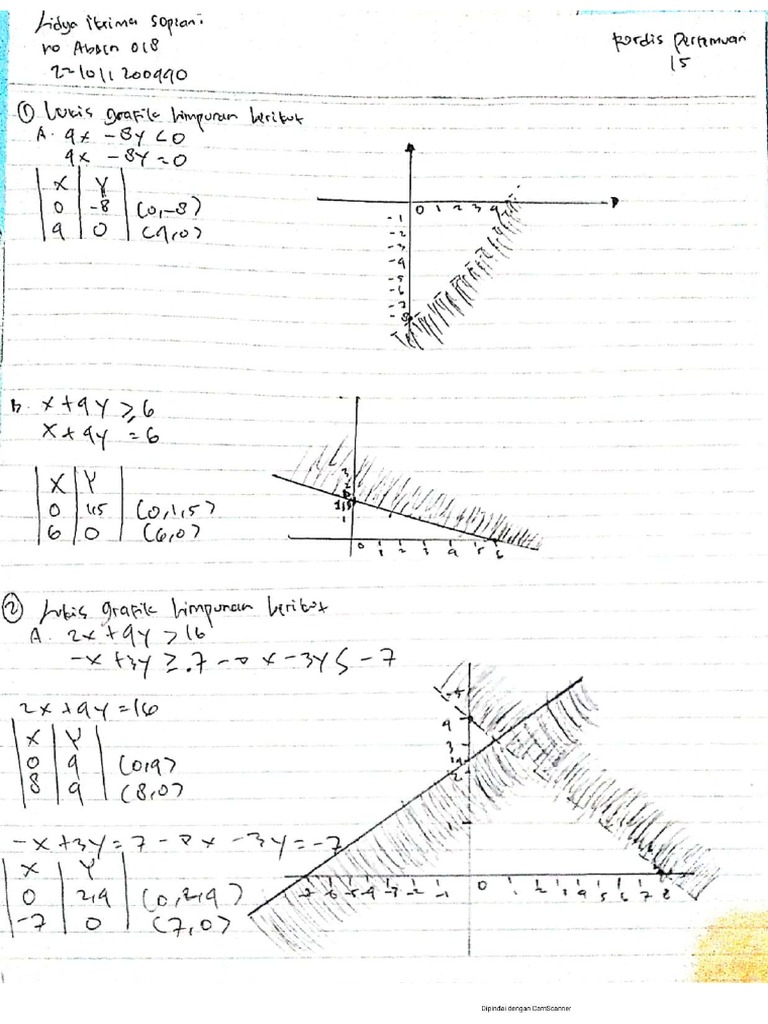 Lidya Ikrima Sopiani
no Absen 018
221011200990
kordis Pertemuan
15
① Lukis grafik himpunan berikut
A. 9x - 8y < 0
9x - 8y = 0
x y
0 -8 (0,-8)
9 0 (9,0)
0 1 2 3 9
-1
-2
-3
-4
-5
-6
-7
-8
b. x + 9y ≥ 6
x + 9y = 6
x y
0 1,5 (0,1,5)
6 0 (6,0)
3
2
1,5
1
0 1 2 3 9 5 6
② Lukis grafik himpunan berikut
A. 2x + 9y > 16
-x + 3y ≥ 7 - 0 x - 3y ≤ -7
2x + 9y = 16
x y
0 9 (0,9)
8 9 (8,0)
-x + 3y = 7 - 0 x - 3y = -7
x y
0 2,9 (0,2,9)
-7 0 (7,0)
5
9
3
2
-7 -6 -5 -9 -3 -2 -1 0 1 2 3 9 5 6 7 8
Dipindai dengan CamScanner